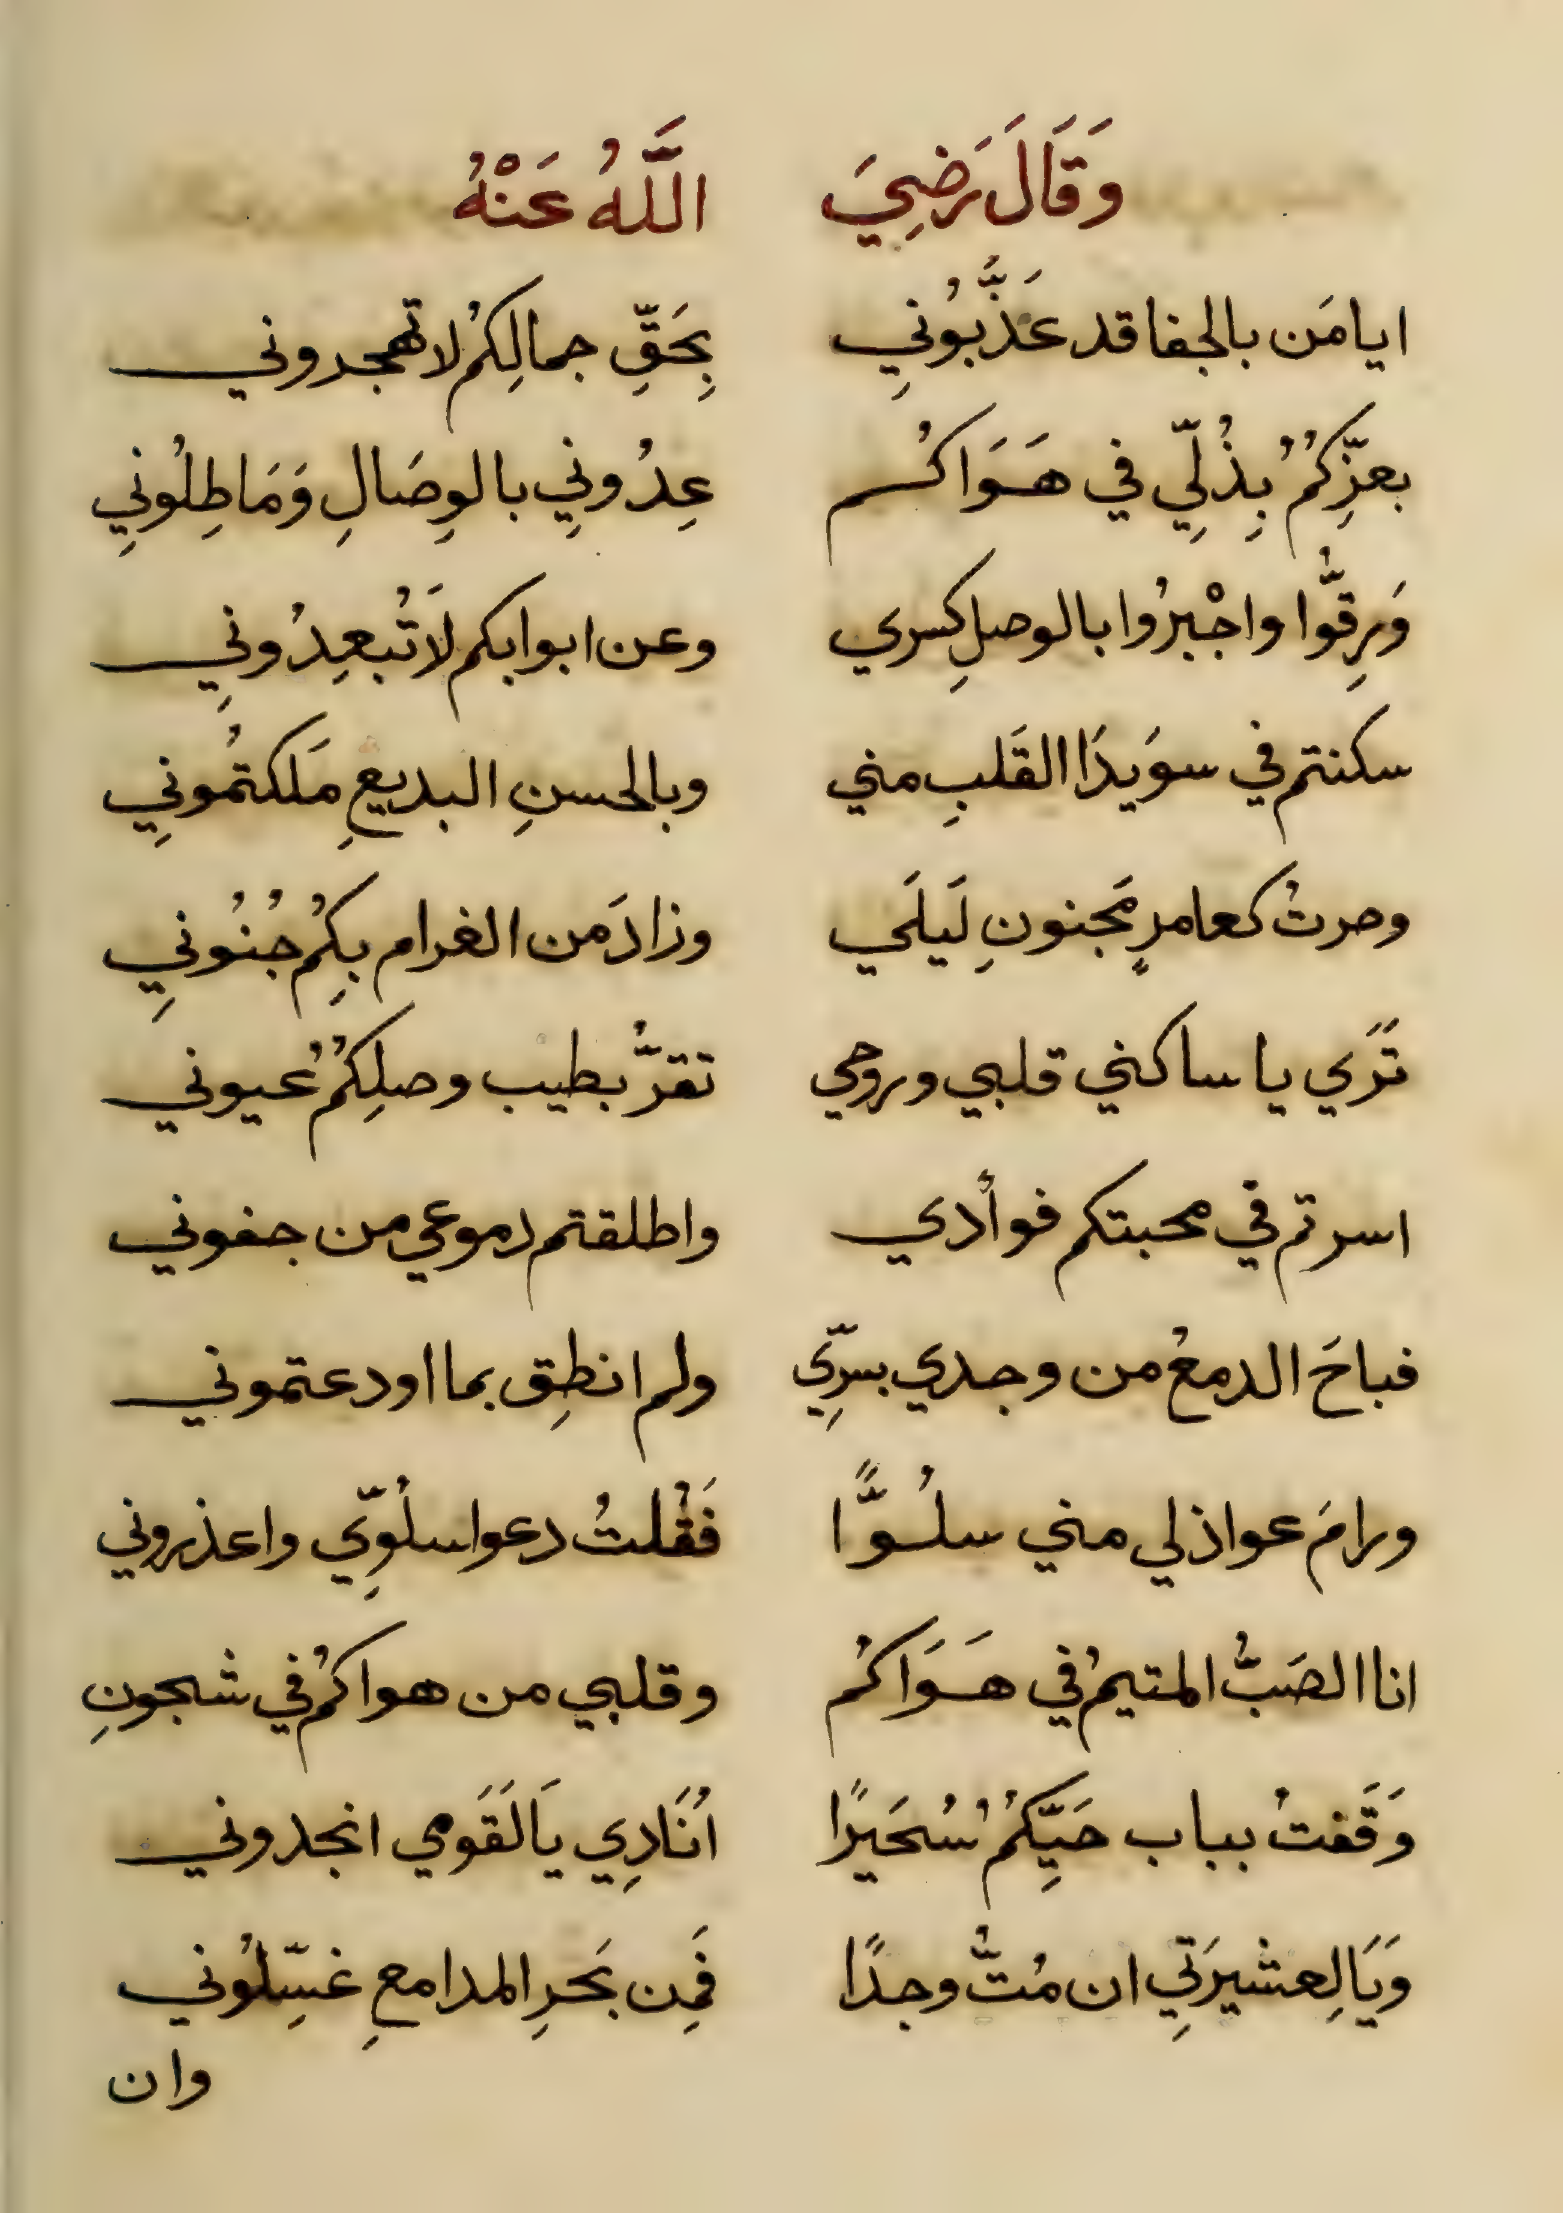 وَقَالَ رَضِيَ اللَّهُ عَنْهُ
ايا مَن بالجفا قد عَذَّبُونِي بِحَقِّ جمالِكُم لا تهجروني
بعزِّكُمُ بِذُلِّي في هَوَاكُم عِدُونِي بالوِصَالِ وَمَاطِلُونِي
وَرِقُّوا واجْبرُوا بالوصلِ كسري وعن ابوابكم لَا تُبعِدُونِي
سكنتم في سوَيدَا القَلبِ مني وبالحسنِ البديعِ مَلكتمُونِي
وصرتُ كعامرٍ مَجنونِ لَيلَي وزادَ من الغرام بكِمُ جُنُونِي
تَرَي يا ساكني قلبي وروحي تقرُّ بطيب وصلِكُمُ عيوني
اسرتم في محبتكم فوأدي واطلقتم دموعي من جفوني
فباحَ الدمعُ من وجدي بسرِّي ولم انطِق بما اودعتموني
ورامَ عواذلي مني سلُوًّا فَقُلتُ دعوا سلُوِّي واعذروني
انا الصَبُّ المتيمُ في هَوَاكُم وقلبي من هواكُم في شجونِ
وَقَفتُ بباب حَيِّكُمُ سُحَيرًا اُنَادِي يَالَقَومي انجدوني
وَيَالِعشيرَتِي ان مُتُّ وجدًا فَمِن بَحرِ المدامعِ غسِّلُوني
وان